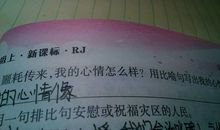 上·新课标·RJ
噩耗传来,我的心情怎么样?用比喻句写出我的心
的心情像
用一句排比句安慰或祝福灾区的人民。